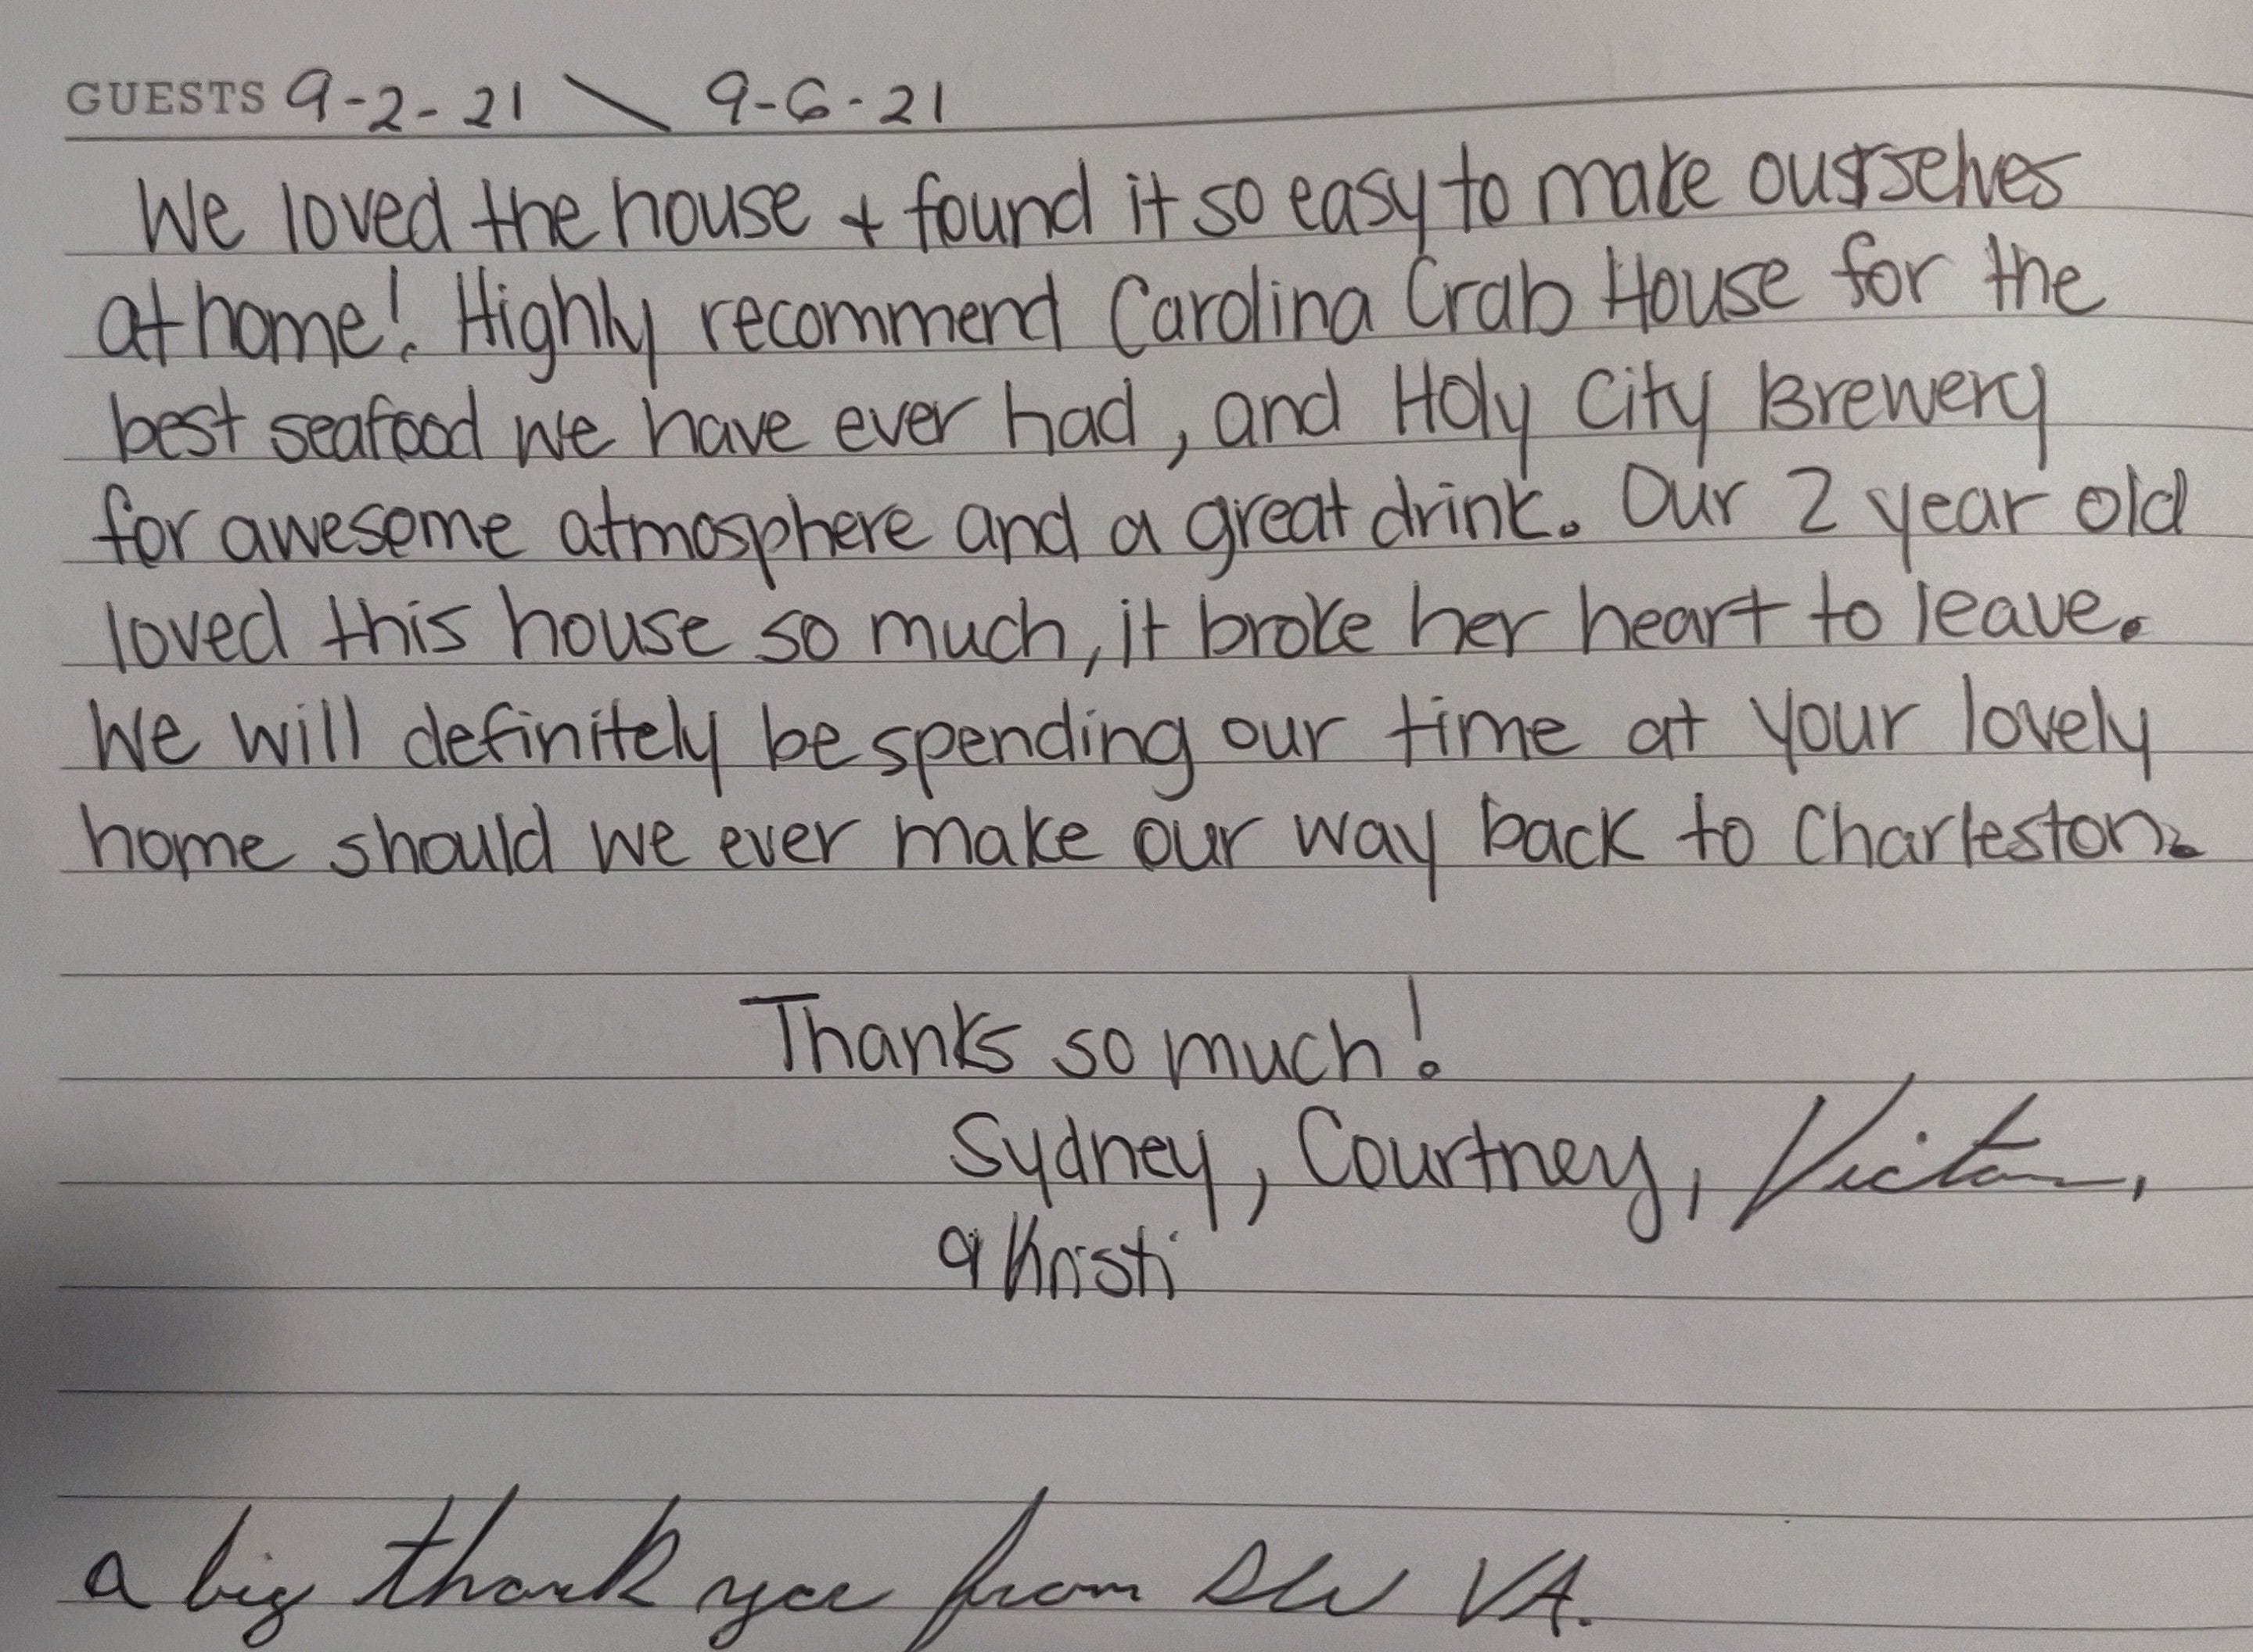 GUESTS 9-2-21 \ 9-6-21
We loved the house + found it so easy to make ourselves
at home! Highly recommend Carolina Crab House for the
best seafood we have ever had, and Holy City Brewery
for awesome atmosphere and a great drink. Our 2 year old
loved this house so much, it broke her heart to leave.
We will definitely be spending our time at your lovely
home should we ever make our way back to Charleston.
Thanks so much!
Sydney, Courtney, Victor,
& Kristi
a big thank you from SW VA.